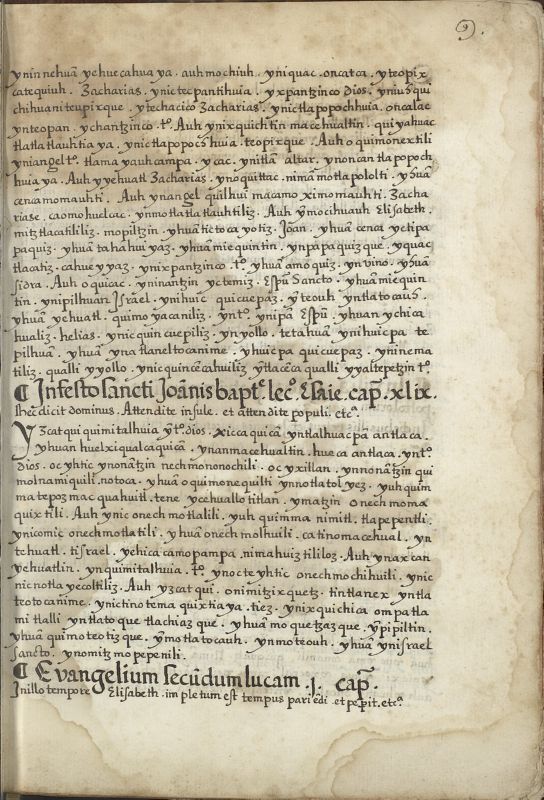 9.
ynin nehuā yehuecahua ya. auh mochiuh. yniquac. oncatca. yteopix
catequiuh. Zacharias. ynictecpantihuia. yxpantzinco dios. yniuh qui
chihuani teupixque. ytechacico Zacharias. ynictlapopochhuia. oncalac
ynteopan. ychantzinco. tº. Auh ynixquichtin macehualtin. quiyahuac
tlatlatlauhtia ya. ynictlapopochhuia. teopixque. Auh oquimonextili
yniangel tº. tlamayauhcampa. ycac. ynitlā altar. ynoncan tlapopoch
huia ya. Auh yyehuatl Zacharias. ynoquittac. nimā motlapololti. yhuā
cenca momauhti. Auh ynangel quilhui macamo ximomauhti. Zacha
riase. ca omohuelcac. ynmotlatlatlauhtiliz. Auh ȳmocihuauh Elisabeth.
mitztlacatililiz. mopiltzin. yhuā tictocayotiz. Joan. yhuā cenca yctipa
paquiz. yhuā tahahuiyaz. yhuā miequintin. ynpapaquizque. yquac
tlacatiz. cahueyyaz. ynixpantzinco. tº. yhuā amo quiz. yn vino. yhuā
sidra. Auh oquiac. yninantzin yctemiz. Espū Sancto. yhuā miequin
tin. ynipilhuan Israel. ynihuic quicuepaz. ȳteouh. yntlatocauh.
yhuā yehuatl. quimoyacaniliz. yntº. ynipā Espū. yhuan ychica
hualiz. helias. ynicquincuepiliz. ynyollo. tetahuā ynihuicpa te
pilhuā. yhuā yna tlaneltocanime. yhuicpa quicuepaz. yninema
tiliz. qualli yyollo. ynicquincēcahuiliz ȳtlacēca qualli yyaltepetzin tº.
¶ In festo sancti Joānis baptᵉ. lecº. Esaie. cap̄. xlix.
Hęc dicit dominus. Attendite insule. et attendite populi. etcᵃ.
Yzcatqui quimitalhuia ȳtº. dios. xiccaquicā yntlalhuacpa antlaca.
yhuan huel xiqualcaquicā. ynanmacehualtin. hueca antlaca. yntº.
dios. oc yhtic ynonātzin nechmononochili. oc yxillan. ynnonātzin qui
molnamiquili. notoca. yhuā oquimonequilti ynnotlatol yez. yuhquim
matepozmacquahuitl. tene ycehuallotitlan. ymatzin onechmoma
quixtili. Auh ynic onechmotlalili. yuh quimma nimitl. tlapepentli.
ynicomic onechmotlatili. yhuā onechmolhuili. catinomacehual. yn
tehuatl. tisrael. yehica camopampa. nimahuiztililoz. Auh ynaxcan
yehuatlin. ynquimitalhuia. tº. ynocteyhtic onechmochihuili. ynic
nicnotlayecoltiliz. Auh yzcatqui. onimitzixquetz. tintlanex yntla
teotocanime. ynictinotemaquixtiaya. tiez. ynixquichica ompa tla
mi tlalli yntlatoque tlachiazque. yhuā moquetzazque. ȳpipiltin.
yhuā quimoteotizque. ȳmotlatocauh. ynmoteouh. yhuā ynisrael
sancto. ynomitzmopepenili.
¶ Evangelium secūdum lucam. j. cap̄.
In illo tempore Elisabeth. impletum est tempus pariēdi. et pepit. etcᵃ.